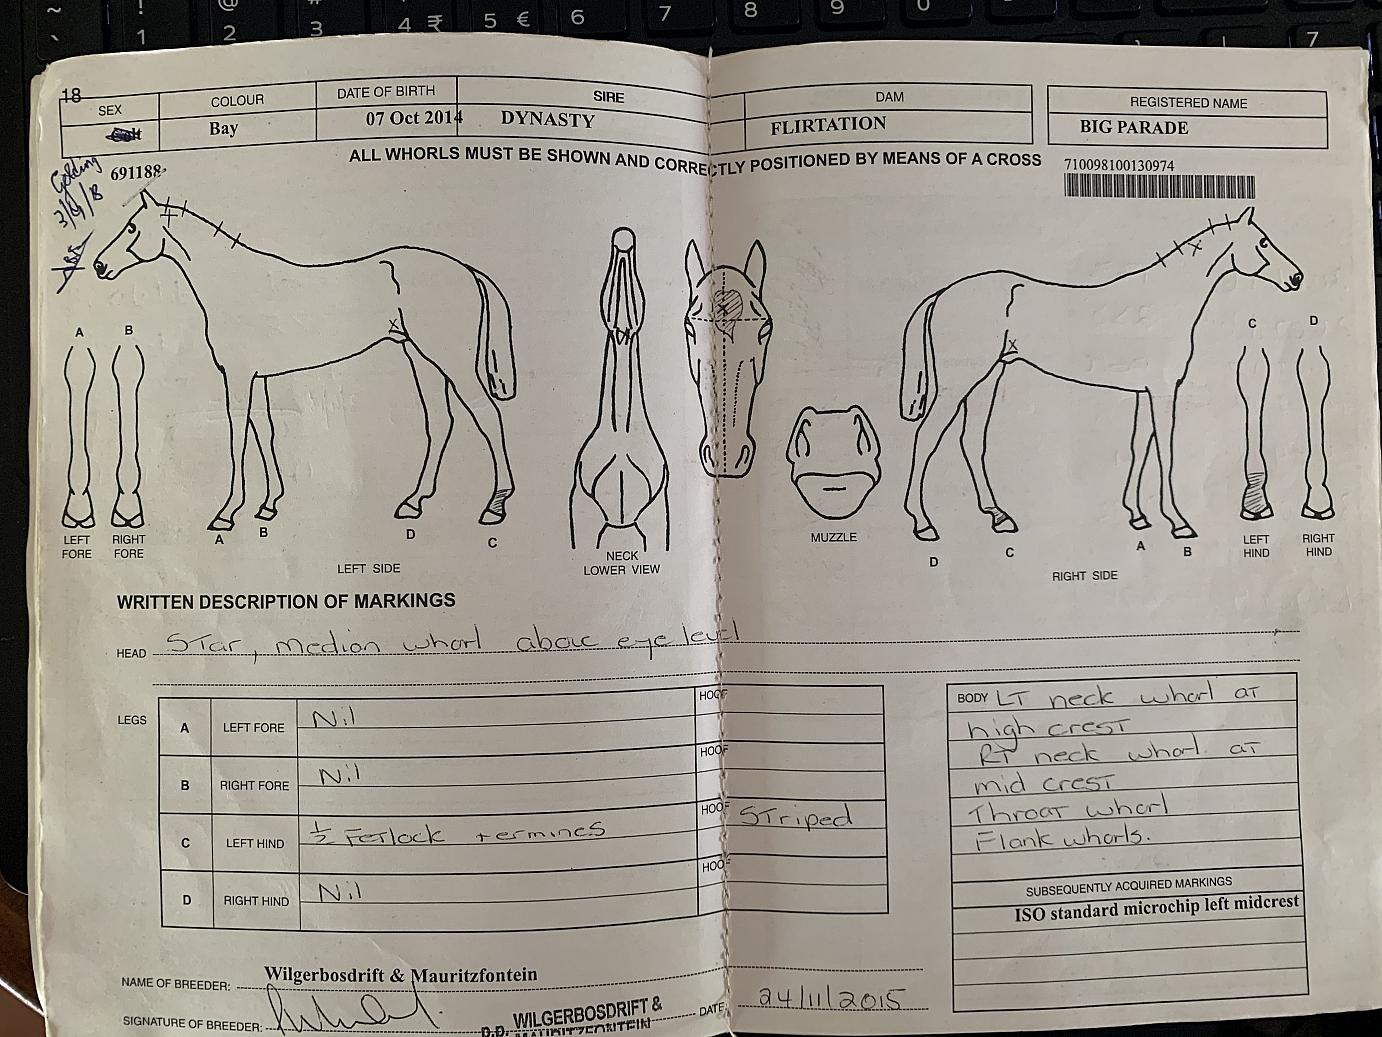 ~ ! @
` 1 2 3 4 ₹ 5 € 6 7 8 9 0 7
18
SEX COLOUR DATE OF BIRTH SIRE DAM REGISTERED NAME
Bay 07 Oct 2014 DYNASTY FLIRTATION BIG PARADE
ALL WHORLS MUST BE SHOWN AND CORRECTLY POSITIONED BY MEANS OF A CROSS
Gelding
691188
710098100130974
A B
C D
LEFT FORE RIGHT FORE
A B D C
LEFT SIDE
NECK
LOWER VIEW
MUZZLE
D C A B
RIGHT SIDE
LEFT HIND RIGHT HIND
WRITTEN DESCRIPTION OF MARKINGS
HEAD Star, median whorl above eye level
LEGS
A LEFT FORE Nil HOOF
B RIGHT FORE Nil HOOF
C LEFT HIND ½ Fetlock + ermines HOOF Striped
D RIGHT HIND Nil HOOF
BODY LT neck whorl at
high crest
RT neck whorl at
mid crest
Throat whorl
Flank whorls.
SUBSEQUENTLY ACQUIRED MARKINGS
ISO standard microchip left midcrest
NAME OF BREEDER: Wilgerbosdrift & Mauritzfontein
SIGNATURE OF BREEDER: DATE: 24/11/2015
WILGERBOSDRIFT &
MAURITZFONTEIN